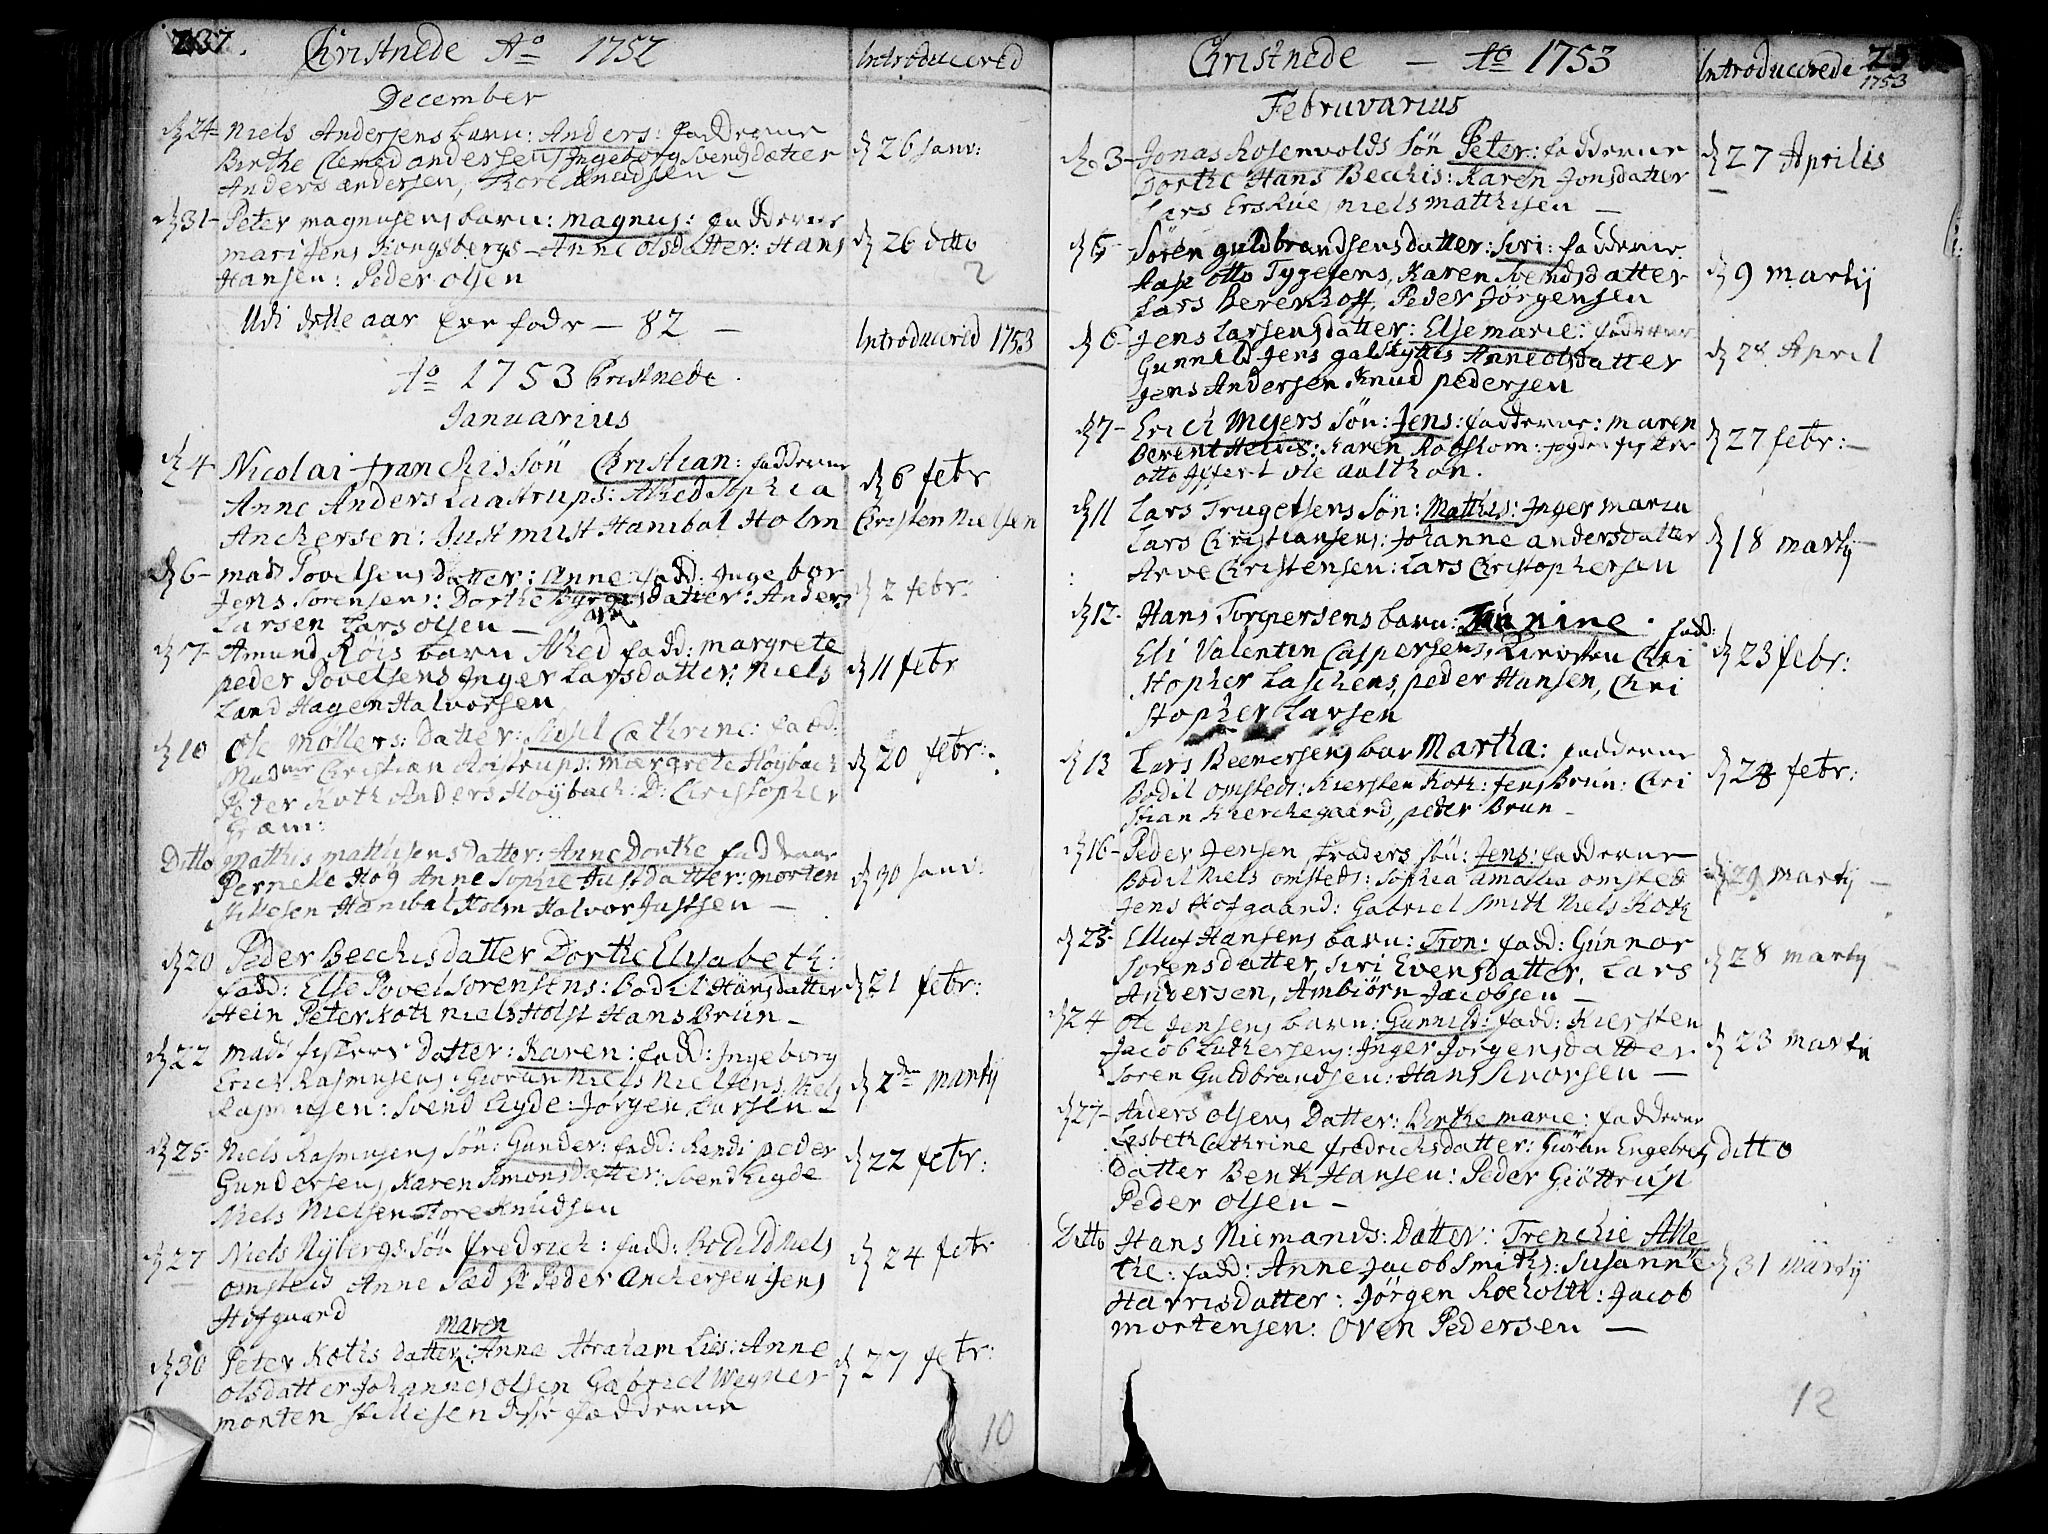 237.
Christnede Ao 1752
Introducerid
December
d 24 Niels Andersens barn: Anders: fadderne
Birthe Clemed andersens Ingeborg Svendsdatter
Anders andersen, Thore Knudsen —
d 26 Janv:
d 31 - Peter magnusens barn: magnus: fadderne
mari Jens Kongsbergs - Anne olsdatter: Hans
Hansen: Peder olsen
d 26 ditto
2
Udi dette aar Ere fødr — 82 —
Introducerid 1753
Ao 1753 Christnede.
Januarius
d 4 Nicolai franchis sön Christian: fadderne
Anne Anders Laastrups: Alhed Sophia
Anchersen: Just must Hanibal Holm
d 6 febr
Christen Nielsen
d 6 - mads Povelsens datter: Anne fadd: Ingebor
Jens Sorensens: Dorthe Byrgesdatter: Anders
Larsen Lars olsen —
d 2 febr:
d 7 - Amund Röis barn Alhed fadd: margrete
peder Povelsens Inger Larsdatter: Niels
Land Hagen Halvorsen
d 11 febr
d 10 Ole möllers: Datter: Sissel Cathrine: fadd:
Christian Roistrups: margrete Höybach
Peter Koth Anders Höybach: D: Christopher
Gram:
d 20 febr:
Ditto Mathis mathisens datter: Anne Dorthe fadderne
Pernelle Hog Anne Sophie Justdatter: morten
Stillesen Hanibal Holm Halvor Justsen —
d 30 Janv:
d 20 Peder Becchis datter Dorthe Elisabeth:
fadd: Else Povel Sorensens: Bodil Hansdatter
Hein Peter Koth niels Holst Hans Brun —
d 21 febr:
d 22 mads fiskers datter: Karen: fadd: Ingeborg
Erich Rasmusens: Giöran Niels Nielsens Niels
Rasmusen: Svend Eigde: Jörgen Larsen —
d 2den marty
d 25 - Niels Rasmusens sön: Gunder: fadd: Randi peder
Gundersens Karen Simonsdatter: Svend Eigde
Niels Nielsen Tore Knudsen
d 22 febr:
d 27 Niels Nybergs: sön fredrich: fadd: Bodild Niels
omsteds Anne Sæd Peder Anchersen Jens
Hofgaard
d 24 febr
maren
d 30 Peter Koths datter: Anne Abraham Lies: Anne
olsdatter Johannes olsen Gabriel Wegner
morten stillesen disse fadderne
d 27 febr:
10
Christnede — Ao 1753
Introducerede
1753
Februvarius
d. 3 - Jonas Rosenvolds sön Peter: fadderne
Dorthe Hans Becchis: Karen Jonsdatter
Lars Erskue, niels matthisen —
d 27 Aprilis
d 5 - Sören guldbrandsens datter: Siri: fadderne
Aase otto Tygesens, Karen Svendsdatter
Lars Berenhoff, Peder Jörgensen
d 9 martij
d 6 - Jens Larsens datter: Else marie: fadderne
Gunnild Jens galskytts Anne olsdatter
Jens Andersen Knud pedersen
d 28 April
d 7 - Erich Myers sön: Jens: fadderne: maren
Berent Helvis: Karen
otto Jffert ole aalholt.
d 27 febr: —
d 11 Lars Trugelsens sön: Mathis: Inger maria
Lars Christiansens: Johanne andersdatter
Arve Christensen: Lars Christophersen
d 18 marty
d 12 - Hans Torgersens barn: Janine. fadd:
Eli Valentin Caspersens, Kiersten Chri
stopher Laschens, peder Hansen, Chri
stopher Larsen
d 23 febr:
d 13 Lars Beenersens bar Martha: fadderne
Bodil omsteds: Kiersten Koth: Jens Brun: Chri
stian Kierchegaard, peder Brun —
d 28 febr:
d 16 - Peder Jensen sön: Jens: fadderne
Bodil Niels omsteds: Sophia amalia omsted
Jens Hofgaard: Gabriel Smith Niels Koth
d 29 marty —
d 23 - Elluf Hansens barn: Tron: fadd: Gunnor
Sorensdatter, Siri Evensdatter, Lars
Andersen, Ambiörn Jacobsen —
d 28 marty
d 24 Ole Jensens barn: Gunnild: fadd: Kiersten
Jacob Luthersens: Inger Jorgensdatter
Soren Guldbrandsen: Hans Sivorsen —
d 23 marti
d 27 - Anders olsens Datter: Birthe marie: fadderne
Lisbeth Cathrine fredrichsdatter: Giöran Engebrets
datter Benth Hansen: Peder Giöttrup
Peder olsen —
ditto
Ditto Hans Niemands: Datter: Trenchie Alle
the: fadd: Anne Jacob Smiths: Susanne
Harrisdatter: Jörgen Roeholth: Jacob
mortensen: Oven Pedersen —
d 31 marty
12